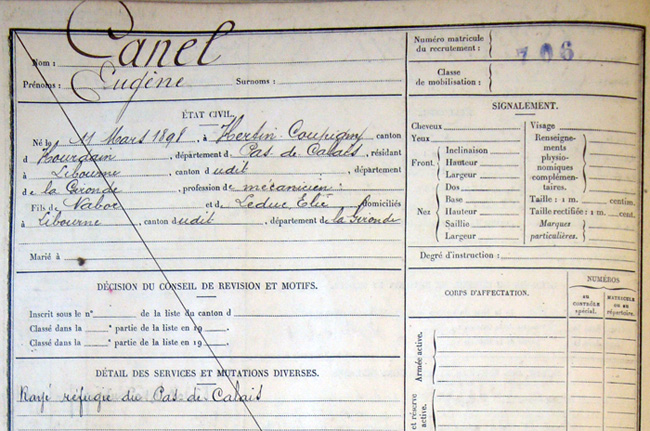 Nom : Canel
Prénoms : Eugène Surnoms :
ÉTAT CIVIL.
Né le 11 Mars 1898, à Hersin-Coupigny canton
d Houdain, département d Pas de Calais, résidant
à Libourne, canton dudit, département
de la Gironde, profession de mécanicien :
Fils de Nabor et de Leduc Elie domiciliés
à Libourne, canton dudit, département de la Gironde
Marié à
DÉCISION DU CONSEIL DE REVISION ET MOTIFS.
Inscrit sous le n° de la liste du canton d
Classé dans la partie de la liste en 19 .
Classé dans la partie de la liste en 19 .
DÉTAIL DES SERVICES ET MUTATIONS DIVERSES.
Rayé réfugié du Pas de Calais
Numéro matricule
du recrutement :
706
Classe
de mobilisation :
SIGNALEMENT.
Cheveux
Yeux
Front.
Inclinaison
Hauteur
Largeur
Nez
Dos
Base
Hauteur
Saillie
Largeur
Visage
Renseigne-
ments
physio-
nomiques
complémen-
taires.
Taille : 1 m. centim.
Taille rectifiée : 1 m. cent.
Marques
particulières.
Degré d'instruction :
CORPS D'AFFECTATION.
NUMÉROS
AU
CONTRÔLE
spécial.
MATRICULE
OU AU
répertoire.
Armée active.
et réserve
active.